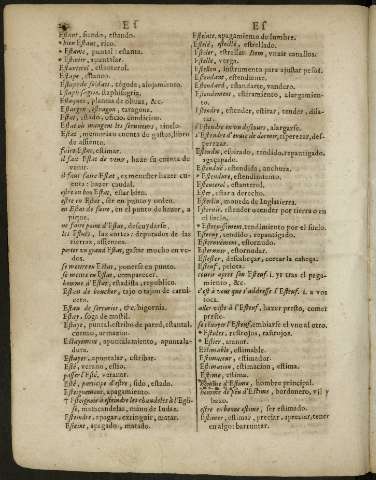 Es
Estant, siendo, estando.
bien Estant, rico.
Estaye, puntal: estanta.
Estayer, apuntalar.
Estanterol, estanterol.
Estape, estanço.
Estape de soldats, togodo, alojamiento.
Estaphisagrie, staphisagria.
Estaques, plantas de obzas, &c.
Estargon, estragon, taragona.
Estat, estado, oficio, condicion.
Estat où mangent les serviteurs, tinelo.
Estat, memoria: cuenta de gastos, libro
de assiento.
faire Estat, estimar.
il fait Estat de venir, haze su cuenta de
venir.
il faut faire Estat, es menester hazer cu-
enta: hazer caudal.
estre en bon Estat, estar bien.
estre en Estat, ser en punto y orden.
en Estat de faire, en el punto de hazer, a
pique.
ne faire point d'Estat, descuydarse.
les Estats, las cortes: deputados de las
tierras, assientos.
porter un grand Estat, gastar mucho en ve-
dos.
se mettre en Estat, ponerse en punto.
se mettre en Estat, comparecer.
homme d'Estat, estadista, republico.
Estau de boucher, tajo o tajon de carni-
cero.
Estau de serrurier, &c, bigornia.
Estay, soga de mastil.
Estaye, puntal: estribo de pared, estantal,
cuento, o manto.
Estayement, apuntalamiento, apuntala-
dura.
Estayer, apuntalar, estribar.
Esté, verano, estio.
passer l'Esté, veranar.
Esté, participe d'estre, sido, estado.
Esteignement, apagamiento.
Esteignoir à esteindre les chandeles à l'Egli-
se, matacandelas, mano de Iudas.
Esteindre, apagar, extinguir, matar.
Esteint, apagado, matado.
Es
Esteinte, apagamiento de lumbre.
Estelé, estellé, estrellado.
Esteler, estrellar. Item, vntar cauallos.
Estelle, verga.
Estellon, instrumento para ajustar pesos.
Estendant, estendiente.
Estendard, estandarte, vandera.
Estendement, estiramiento, alargamien-
to.
Estendre, estender, estirar, tender, dila-
tar.
s'Estendre en son discours, alargarse.
s'Estendre d'envie de dormir, esperezar, des-
perezar.
Estendu, estirado, tendido, repantigado,
agaçapado.
Estenduë, estendida, anchura.
Estendure, estendimiento.
Estenterol, estanterol.
Ester, estar a derecho.
Esterlin, moneda de Inglaterra.
Esternir, estender o tender por tierra o en
el suelo.
Esternissement, tendimiento por el suelo.
Esterny, tendido, repantigado.
Esternuement, estornudo.
Esternuer, estornudar.
Estester, descabeçar, cortar la cabeça.
Esteuf, pelota.
courir apres son Esteuf, i. yr tras el paga-
miento, &c.
c'est à vous que s'addresse l'Esteuf. i. a vos
toca.
aller viste à l'Esteuf, hazer presto, comer
presto.
se renvoyer l'Esteuf, embiarse el vno al otro.
Esteules, rastrojos, rastrojos.
Estier, atanor.
Estimable, estimable.
Estimateur, estimador.
Estimation, estimacion, estima.
Estime, estima.
homme d'Estime, hombre principal.
homme de peu d'Estime, bordonero, vil y
baxo.
estre en bonne estime, ser estimado.
Estimer, estimar, preciar, apreciar, tener
en algo: barruntar.